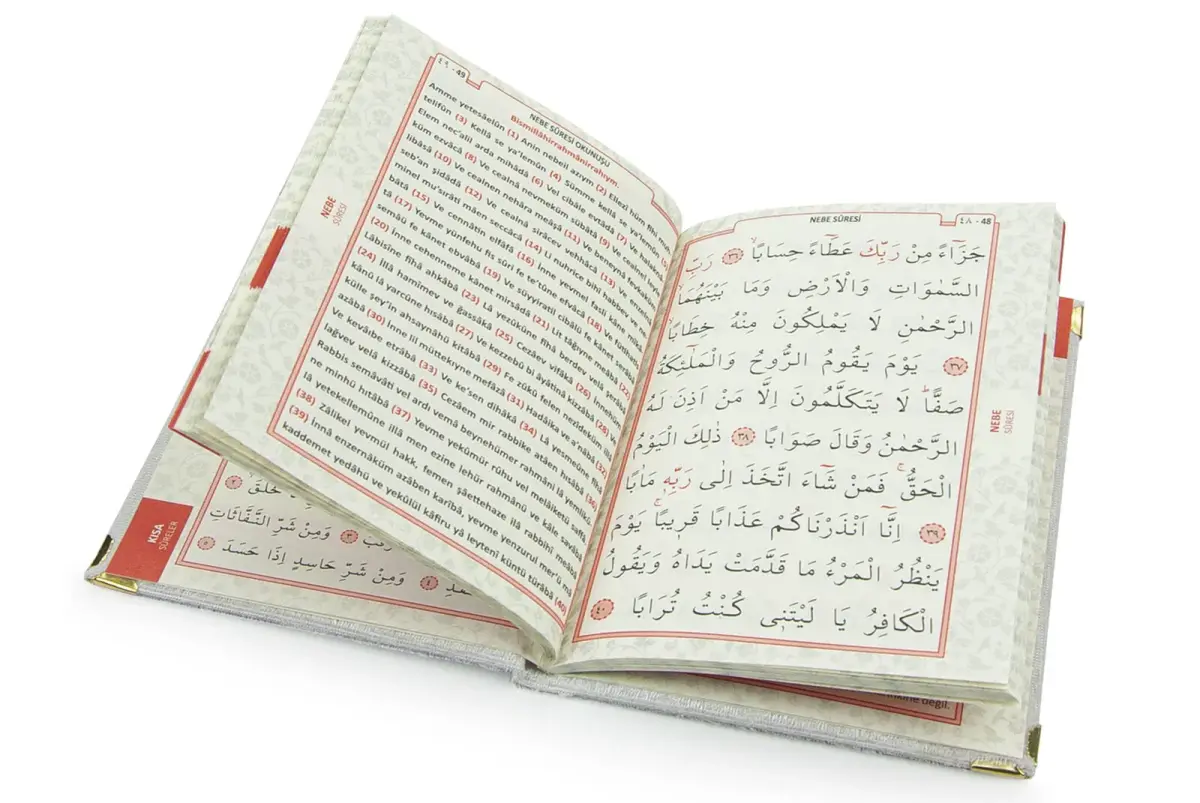 NEBE SÛRESİ
٤٨ - 48
جَزَٓاءً مِنْ رَبِّكَ عَطَٓاءً حِسَابًاۙ ﴿٣٦﴾ رَبِّ
السَّمٰوَاتِ وَالْاَرْضِ وَمَا بَيْنَهُمَا
الرَّحْمٰنِ لَا يَمْلِكُونَ مِنْهُ خِطَابًاۚ
﴿٣٧﴾ يَوْمَ يَقُومُ الرُّوحُ وَالْمَلٰٓئِكَةُ
صَفًّاۜ لَا يَتَكَلَّمُونَ اِلَّا مَنْ اَذِنَ لَهُ
الرَّحْمٰنُ وَقَالَ صَوَابًا ﴿٣٨﴾ ذٰلِكَ الْيَوْمُ
الْحَقُّۚ فَمَنْ شَٓاءَ اتَّخَذَ اِلٰى رَبِّه۪ مَاٰبًا
﴿٣٩﴾ اِنَّٓا اَنْذَرْنَاكُمْ عَذَابًا قَر۪يبًاۚ يَوْمَ
يَنْظُرُ الْمَرْءُ مَا قَدَّمَتْ يَدَاهُ وَيَقُولُ
الْكَافِرُ يَا لَيْتَن۪ي كُنْتُ تُرَابًا ﴿٤٠﴾
NEBE
SÛRESİ
٤٩ - 49
NEBE SÛRESİ OKUNUŞU
Bismillâhirrahmânirrahıym.
Amme yetesâelûn (1) Anin nebeil azıym (2) Ellezî hüm fîhi
telifûn (3) Kellâ se ya'lemûn (4) Sümme kellâ se ya'lemûn (5)
Elem nec'alil arda mihâdâ (6) Vel cibâle evtâdâ (7) Ve
küm ezvâcâ (8) Ve cealnâ nevmeküm sübâtâ (9) Ve cealnel
libâsâ (10) Ve cealnen nehâra meâşâ (11) Ve beneynâ fevkaküm
seb'an şidâdâ (12) Ve cealnâ sirâcev vehhâcâ (13) Ve enzelnâ
minel mu'sırâti mâen seccâcâ (14) Li nuhrice bihî habbev ve ne
bâtâ (15) Ve cennâtin elfâfâ (16) İnne yevmel fasli kâne mîkâ
tâ (17) Yevme yünfehu fis sûri fe te'tûne efvâcâ (18) Ve fütihatis
semâü fe kânet ebvâbâ (19) Ve süyyiratil cibâlü fe kânet serâbâ
(20) İnne cehenneme kânet mirsâdâ (21) Lit tâğıyne meâbâ (22)
Lâbisîne fîhâ ahkâbâ (23) Lâ yezûkûne fîhâ berdev velâ şerâbâ
(24) İllâ hamîmev ve ğassâkâ (25) Cezâev vifâkâ (26) İnnehüm
kânû lâ yarcûne hısâbâ (27) Ve kezzebû bi âyâtinâ kizzâbâ (28) Ve
külle şey'in ahsaynâhü kitâbâ (29) Fe zûkû felen nezîdeküm illâ
azâbâ (30) İnne lil müttekıyne mefâzâ (31) Hadâika ve a'nâbâ (32)
Ve kevâıbe etrâbâ (33) Ve ke'sen dihâkâ (34) Lâ yesmeûne fîhâ
lağvev velâ kizzâbâ (35) Cezâem mir rabbike atâen hısâbâ (36)
Rabbis semâvâti vel ardı vemâ beynehümer rahmâni lâ yemlikû
ne minhü hıtâbâ (37) Yevme yekûmür rûhu vel melâiketü saffâ,
lâ yetekellemûne illâ men ezine lehür rahmânü ve kâle savâbâ
(38) Zâlikel yevmül hakk, femen şâettehaze ilâ rabbihî meâbâ
(39) İnnâ enzernâküm azâben karîbâ, yevme yenzurul mer'ü mâ
kaddemet yedâhü ve yekûlül kâfiru yâ leytenî küntü türâbâ (40)
NEBE
SÛRESİ
KISA
SÛRELER
خَلَقَۙ ﴿٢﴾
﴿٣﴾ وَمِنْ شَرِّ النَّفَّاثَاتِ
﴿٤﴾ وَمِنْ شَرِّ حَاسِدٍ اِذَا حَسَدَ ﴿٥﴾
değil.